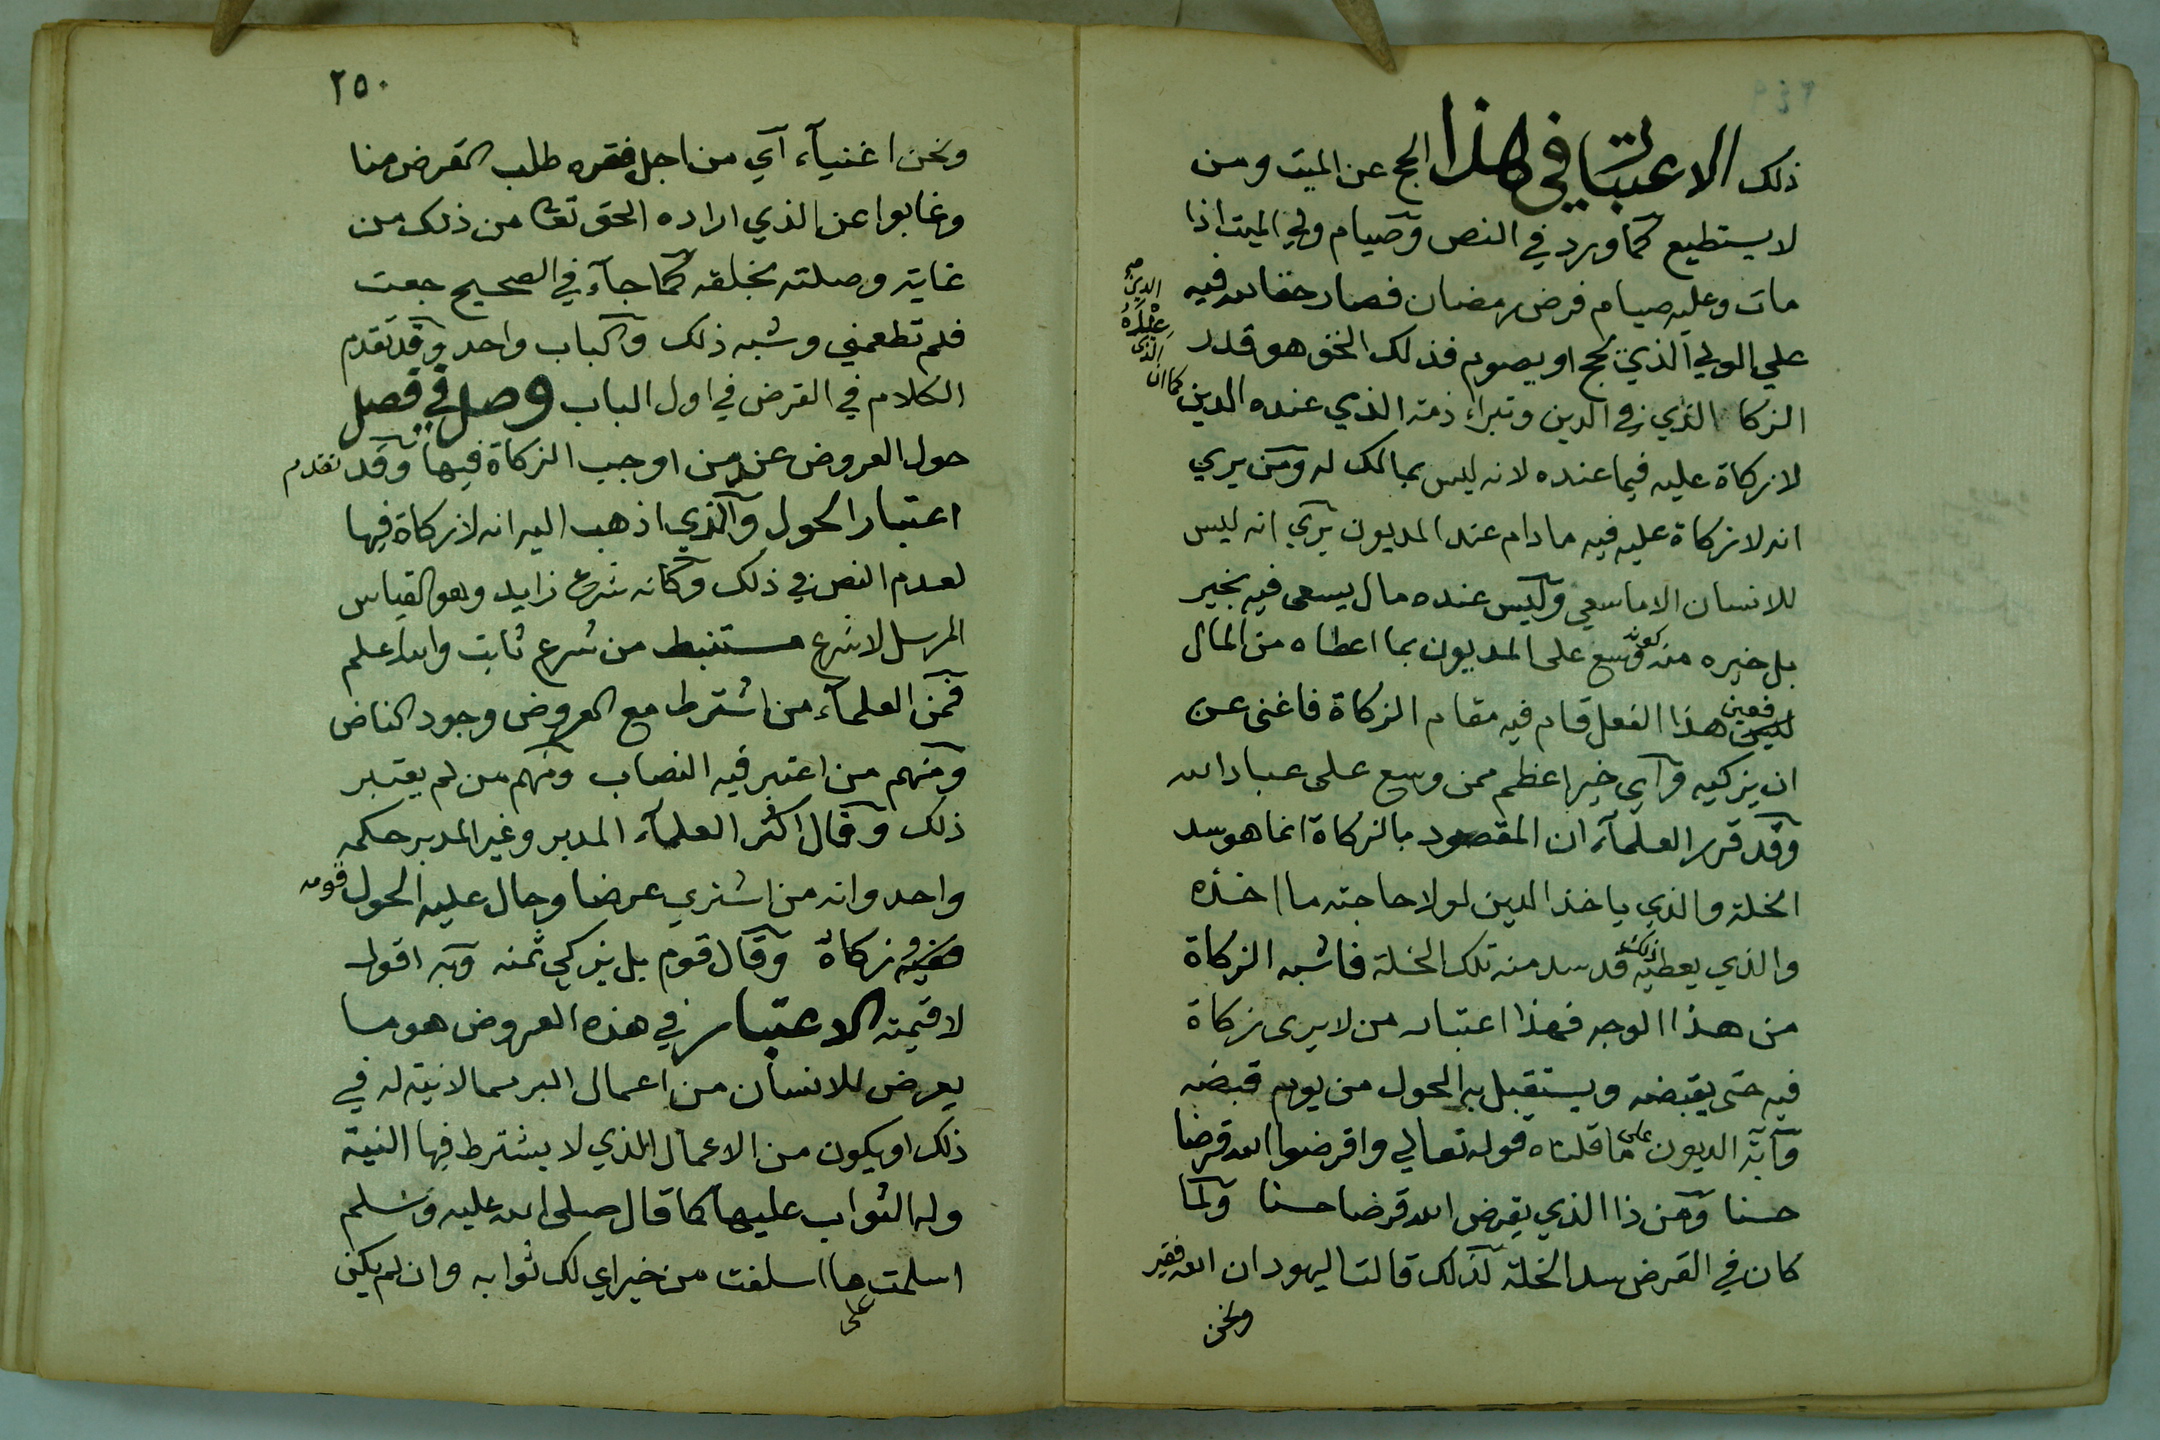 ذلك الاعتبار في هذا الحج عن الميت ومن
لا يستطيع كما ورد في النص وصيام ولي الميت اذا
مات وعليه صيام فرض رمضان فصار حقا لله فيه
علي الولي الذي يحج او يصوم فذلك الحق هو قدر
الزكاة الذي في الدين وتبراء ذمة الذي عنده الدين كما ان
الذي
عنده
الدين
صح
لا زكاة عليه فيما عنده لانه ليس بمالك له ومن يري
انه لا زكاة عليه فيه ما دام عند المديون يري انه ليس
للانسان الا ما سعي وليس عنده مال يسعى فيه بخير
بل خيره منه كونه وسع على المديون بما اعطاه من المال
فعين هذا الفعل قام فيه مقام الزكاة فاغنى عن
ان يزكيه واي خير اعظم ممن وسع على عباد الله
وقد قرر العلماء ان المقصود بالزكاة انما هو سد
الخلة والذي ياخذ الدين لولا حاجته ما اخذه
والذي يعطيه ذلك قد سد منه تلك الخلة فاشبه الزكاة
من هذا الوجه فهذا اعتبار من لا يرى زكاة
فيه حتى يقبضه ويستقبل به الحول من يوم قبضه
واية الديون على ما قلناه قوله تعالي واقرضوا الله قرضا
حسنا ومن ذا الذي يقرض الله قرضا حسنا ولما
كان في القرض سد الخلة لذلك قالت اليهود ان الله فقير
ونحن
٢٥٠
ونحن اغنياء اي من اجل فقره طلب القرض منا
وغابوا عن الذي اراده الحق تعا من ذلك من
غاية وصلته بخلقه كما جاء في الصحيح جعت
فلم تطعمني وشبه ذلك والباب واحد وقد تقدم
الكلام في القرض في اول الباب وصل في فصل
حول العروض عند من اوجب الزكاة فيها وقد تقدم
اعتبار الحول والذي اذهب اليه انه لا زكاة فيها
لعدم النص في ذلك وكانه شرع زايد وهو القياس
المرسل لا شرع مستنبط من شرع ثابت والله اعلم
فمن العلماء من اشترط مع العروض وجود الناض
ومنهم من اعتبر فيه النصاب ومنهم من لم يعتبر
ذلك وقال اكثر العلماء المدبر وغير المدبر حكمه
واحد وانه من اشتري عرضا وحال عليه الحول قومه
وزكاه وقال قوم بل يزكي ثمنه وبه اقول
لا قيمته الاعتبار في هذه العروض هو ما
يعرض للانسان من اعمال البر مما لا نية له في
ذلك او يكون من الاعمال الذي لا يشترط فيها النية
وله الثواب عليها كما قال صلى الله عليه وسلم
اسلمت على ما اسلفت من خير اي لك ثوابه وان لم يكن